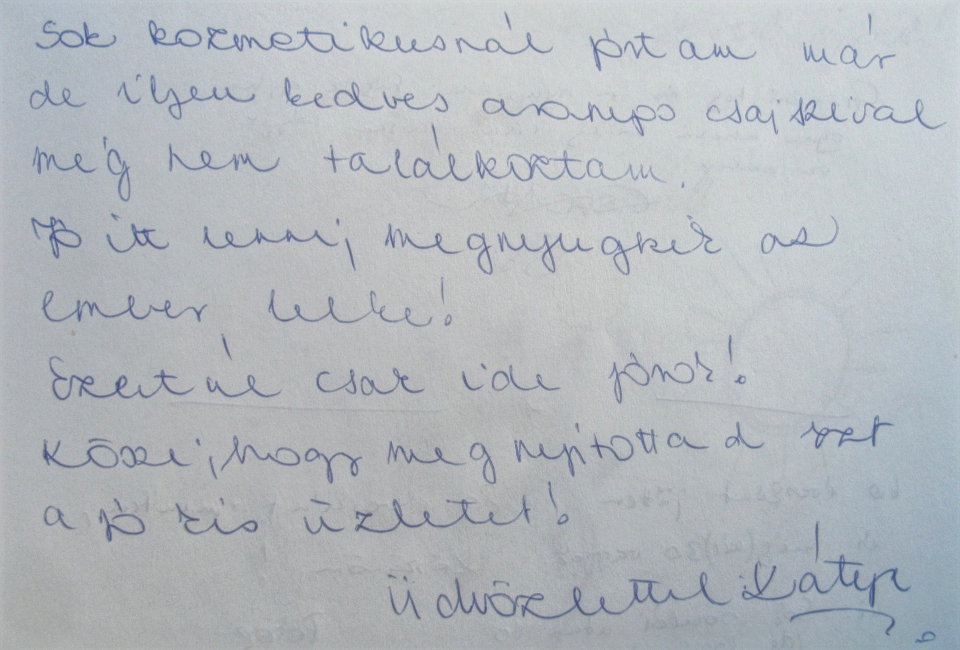 Sok kozmetikusnál jártam már
de ilyen kedves aranyos csajszival
még nem találkoztam.
Jó itt lenni, megnyugszik az
ember lelke!
Ezentúl csak ide jövök!
Köszi, hogy megnyitottad ezt
a jó kis üzletet!
Üdvözlettel